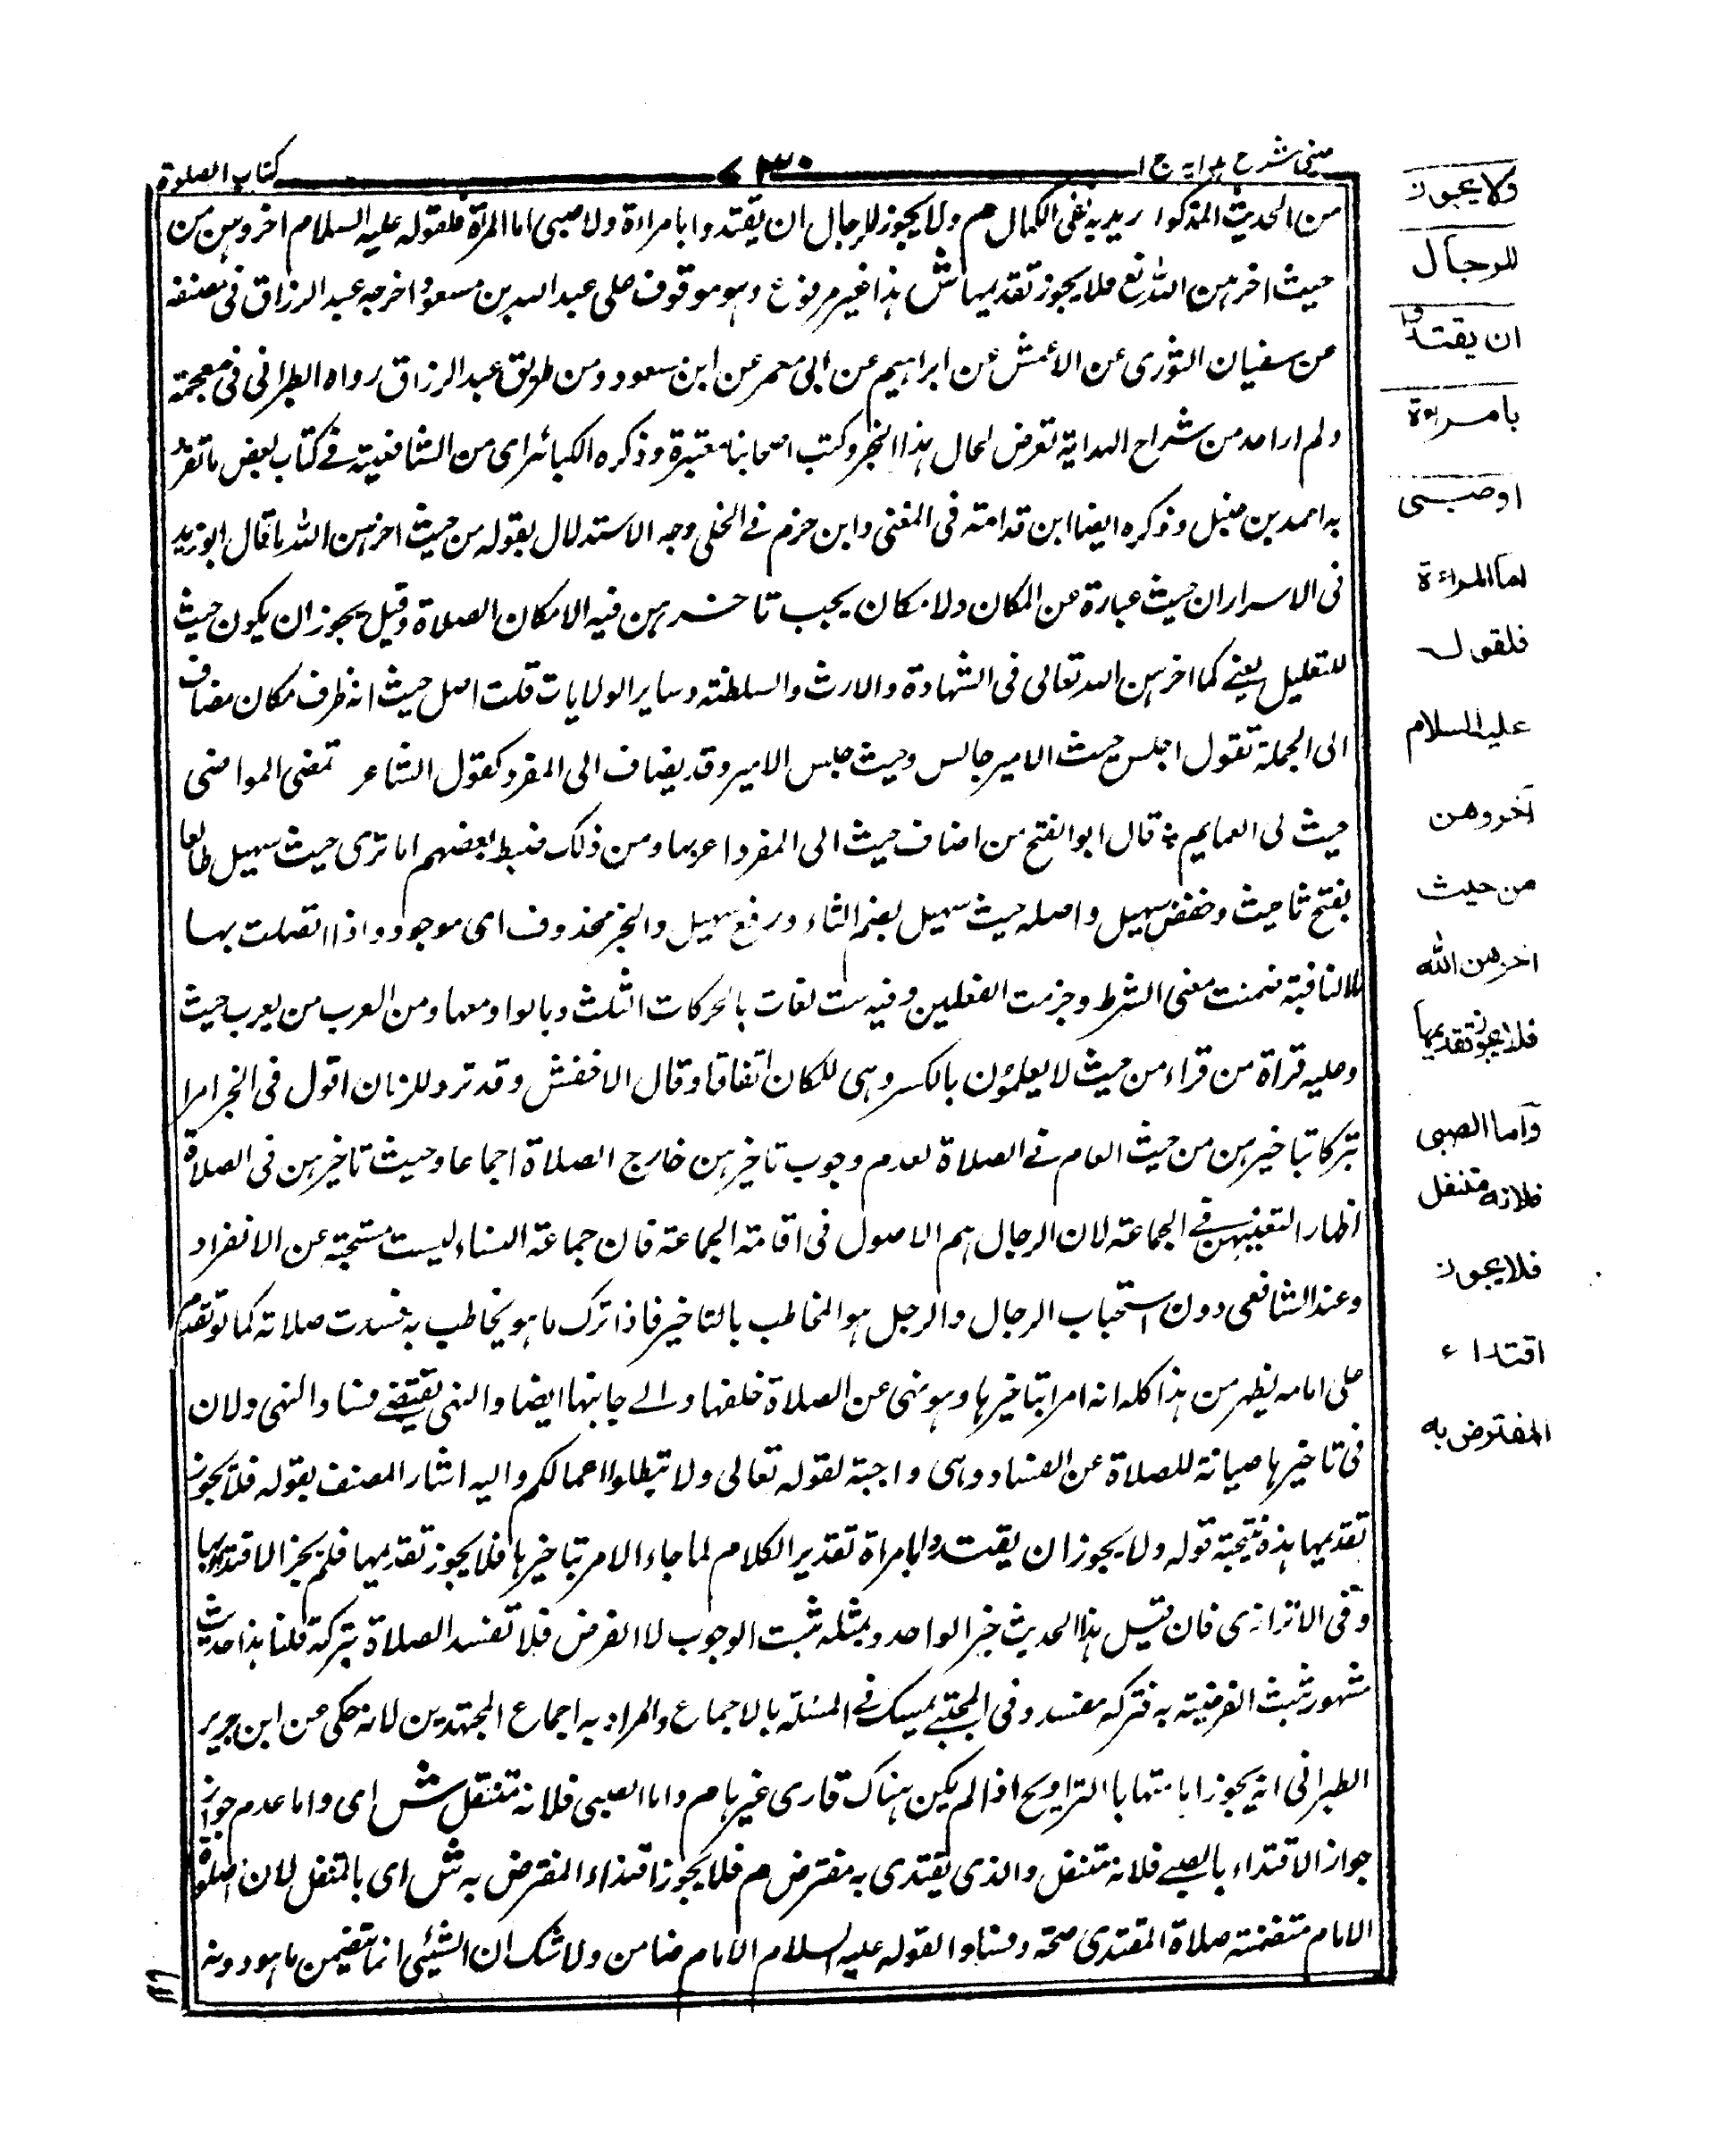 عینی شرح هدایه ج ۱
۷۳۰
كتاب الصلوة
من الحديث المذكور يريد به نفى الكمال م ولا يجوز للرجال ان يقتدوا بامراءة ولا صبى اما المرأة فلقوله عليه السلام اخروهن من
حيث اخرهن الله تع فلا يجوز تقديمها ش هذا غير مرفوع وهو موقوف على عبد الله بن مسعود اخرجه عبد الرزاق فى مصنفه
من سفيان الثورى عن الاعمش عن ابراهيم عن ابى معمر عن ابن مسعود ومن طريق عبد الرزاق رواه الطبرانى فى معجمة
ولم ار احد من شراح الهداية تعرض لحال هذا الخبر وكتب اصحابنا معتبرة وذكره الكبائر اى من الشافعية فى كتاب بعض ما تفرد
به احمد بن حنبل وذكره ايضا ابن قدامة فى المغنى وابن حزم فى المحلى وجه الاستدلال بقوله من حيث اخرهن الله ما قال ابو زيد
فى الاسرار ان حيث عبارة عن المكان ولا مكان يجب تاخرهن فيه الا مكان الصلاة وقيل يجوز ان يكون حيث
للتعليل يعنى كما اخرهن الله تعالى فى الشهادة والارث والسلطنة وساير الولايات قلت اصل حيث انه ظرف مكان مضاف
الى الجملة تقول اجلس حيث الامير جالس وحيث جلس الامير وقد يضاف الى المفرد كقول الشاعر تمضى المواضى
حيث لى العمايم ٭ قال ابو الفتح من اضاف حيث الى المفرد اعربها ومن ذلك ضبط بعضهم اما ترى حيث سهيل طالعا
بفتح ثا حيث وخفض سهيل واصله حيث سهيل بضم الثاء ورفع سهيل والخبر محذوف اى موجود واذا اتصلت بها
ما الناقبة ضمنت معنى الشرط وجزمت الفعلين وفيه ست لغات بالحركات الثلث وبالواو معها ومن العرب من يعرب حيث
وعليه قراة من قراء من حيث لا يعلمون بالكسر وهى للمكان اتفاقا وقال الاخفش وقد ترد للزمان اقول فى الخبر امرا
بتركا بتاخيرهن من حيث العام فى الصلاة لعدم وجوب تاخيرهن خارج الصلاة اجماعا وحيث تاخيرهن فى الصلاة
اظهار التعيبهن فى الجماعة لان الرجال هم الاصول فى اقامة الجماعة فان جماعة النساء ليست مستحبة عن الانفراد
وعند الشافعى دون استحباب الرجال والرجل هو المخاطب بالتاخير فاذا ترك ما هو يخاطب به فسدت صلاته كما لو تقدم
على امامه يظهر من هذا كله انه امر بتاخيرها وهو نهى عن الصلاة خلفها والى جانبها ايضا والنهى يقتضى فساد النهى ولان
فى تاخيرها صيانة للصلاة عن الفساد وهى واجبة لقوله تعالى ولا تبطلوا اعمالكم واليه اشار المصنف بقوله فلا يجوز
تقديمها هذه نتيجة قوله ولا يجوز ان يقتدوا بامراة تقدير الكلام لما جاء الامر بتاخيرها فلا يجوز تقديمها فلم يجز الاقتداء بها
وفى الاترازى فان قيل هذا الحديث خبر الواحد وبمثله ثبت الوجوب لا الفرض فلا تفسد الصلاة بتركه قلنا هذا حديث
مشهور ثبت الفرضية به فتركه مفسد وفى المجتبى يمسك فى المسئلة بالاجماع والمراد به اجماع المجتهدين لانه حكى عن ابن جرير
الطبرانى انه يجوز امامتها بالتراويح اذا لم يكن هناك قارى غيرها م واما الصبى فلانه متنفل ش اى واما عدم جواز
جواز الاقتداء بالصبى فلانه متنفل والذى يقتدى به مفترض م فلا يجوز اقتداء المفترض به ش اى بالمتنفل لان صلوة
الامام متضمنة صلاة المقتدى صحة وفسادا لقوله عليه السلام الامام ضامن ولا شك ان الشيئ انما تضمن ما هو دونه
ولا يجوز
للرجال
ان يقتدوا
بامراءة
اوصبى
اما المراءة
فلقول
عليه السلام
آخروهن
من حيث
اخرهن الله
فلا يجوز تقديمها
وآما الصبى
فلانه متنفل
فلا يجوز
اقتداء
المفترض به